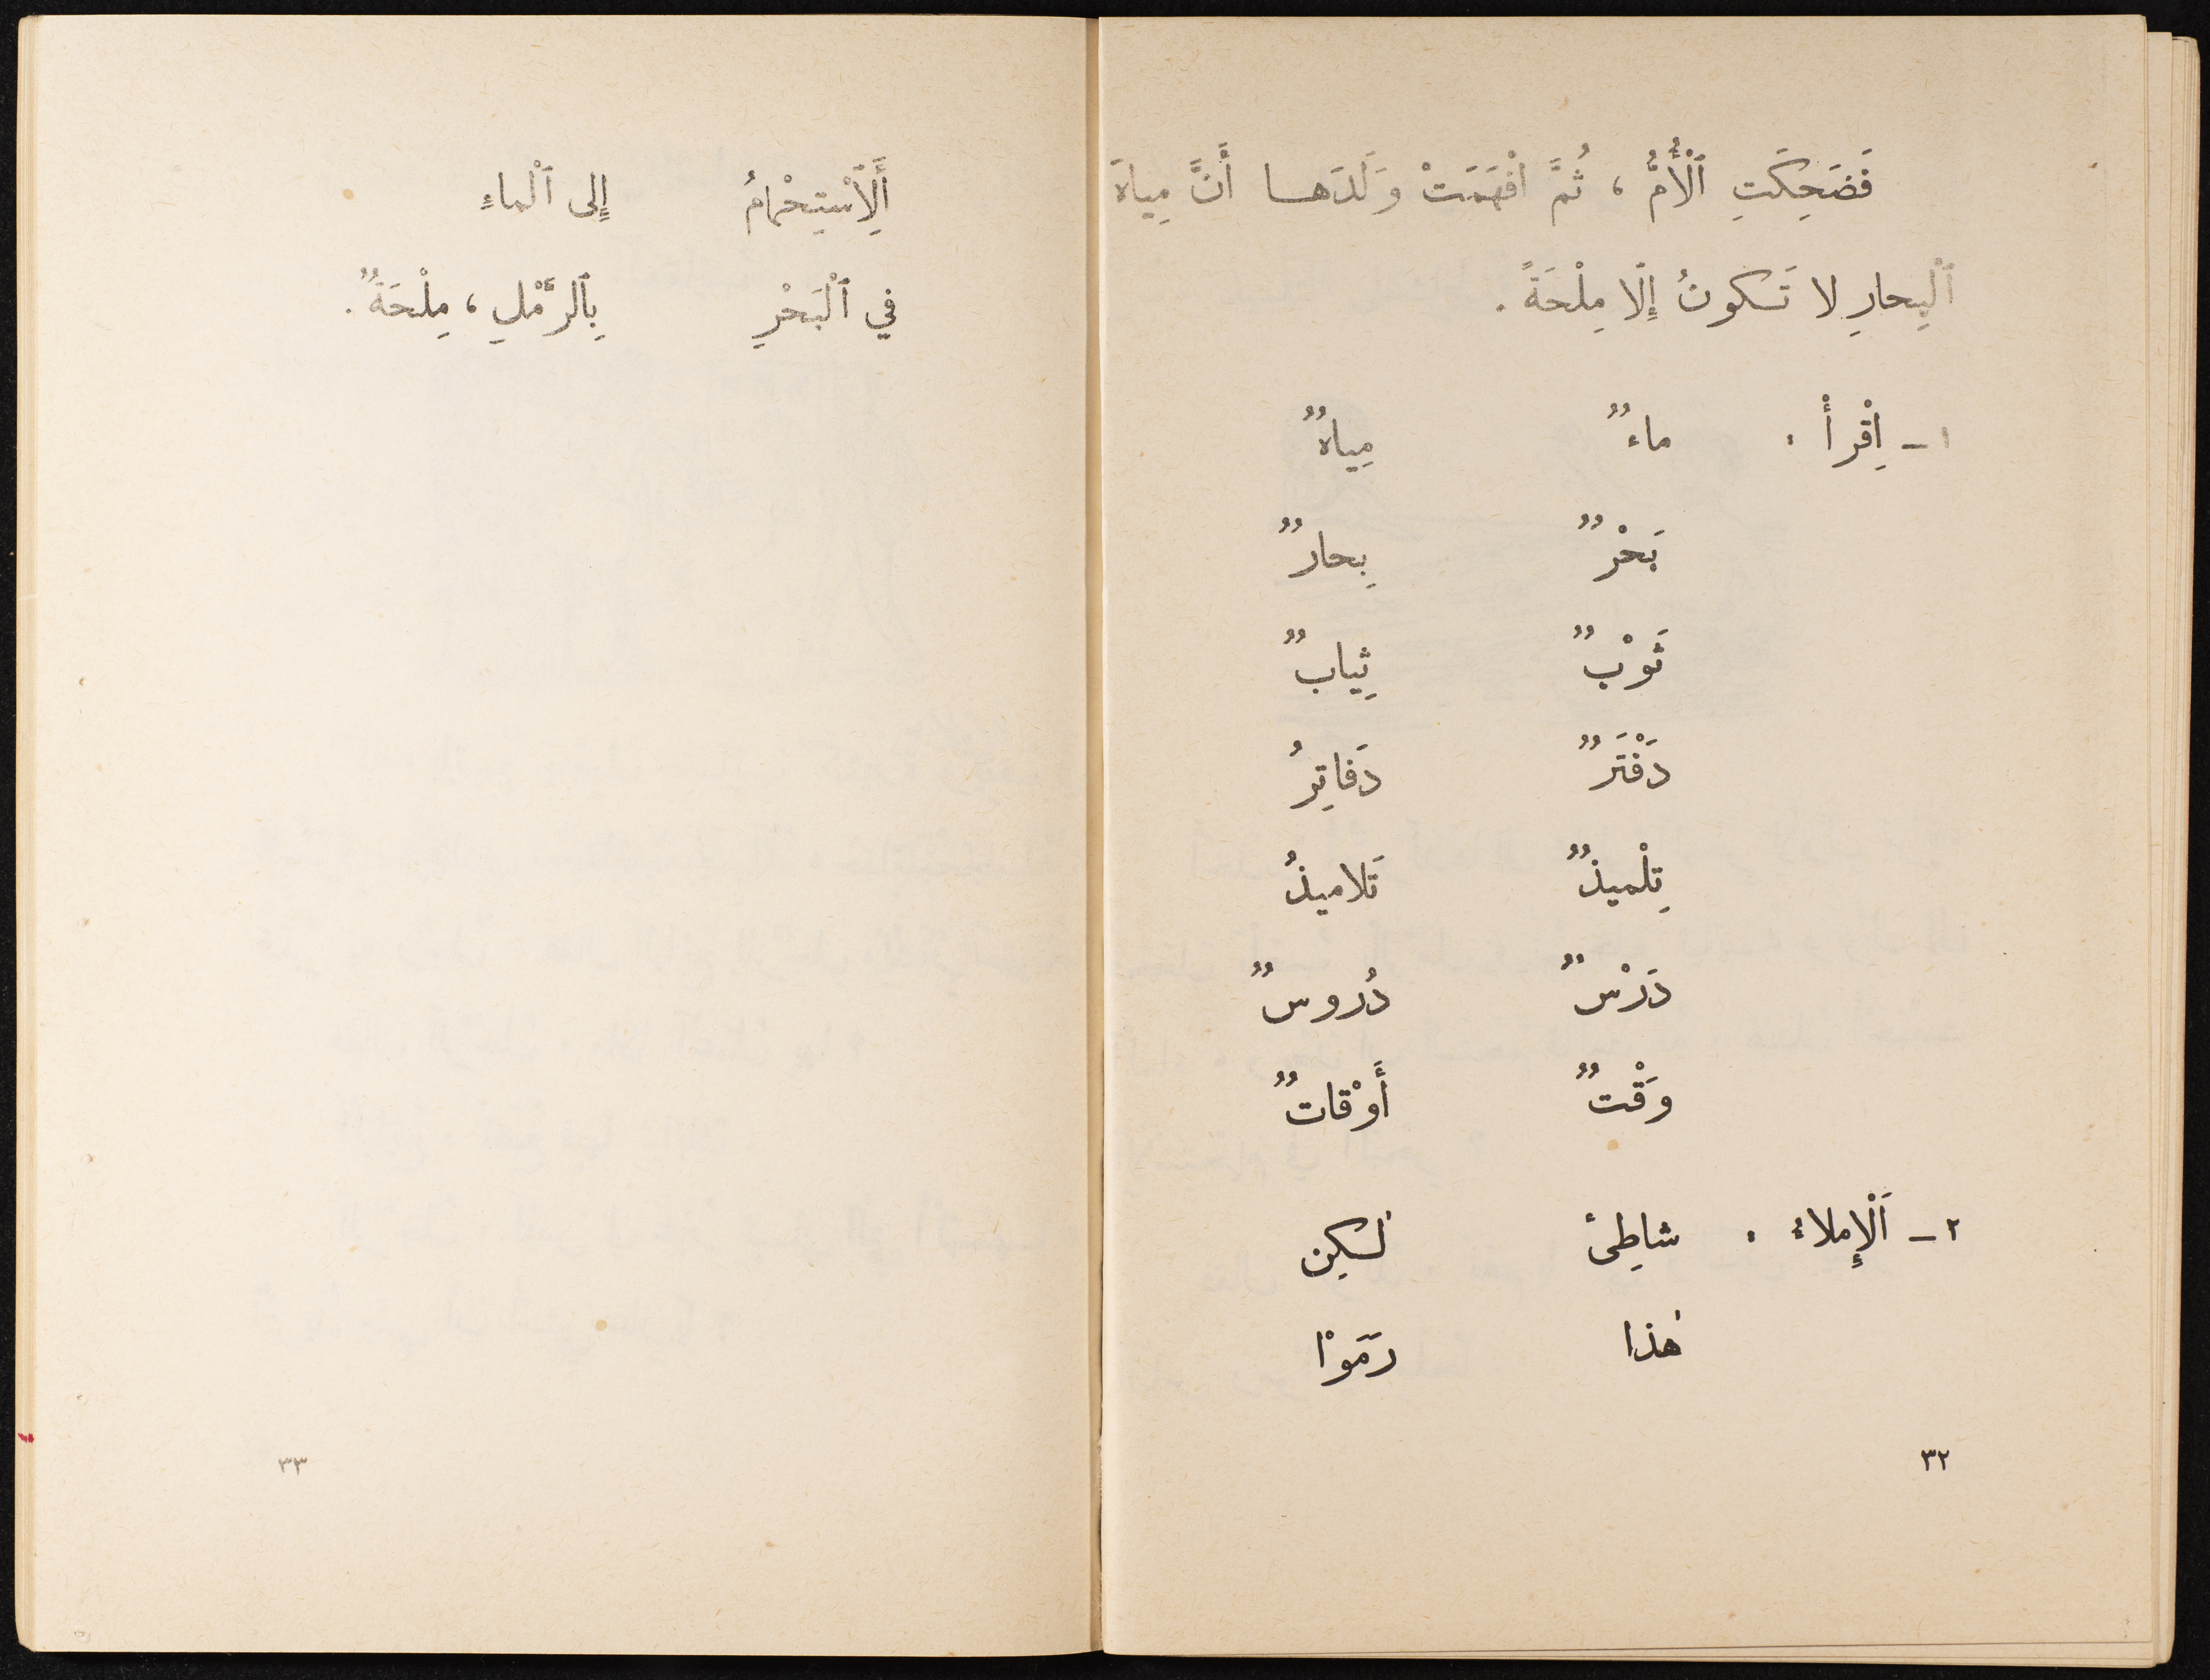 فَضَحِكَتِ ٱلْأُمُّ ، ثُمَّ افْهَمَتْ وَلَدَها أَنَّ مِياهَ
ٱلْبِحارِ لا تَكونُ إِلّا مِلْحَةً .
١ – اِقْرأْ : ماءٌ مِياهٌ
بَحْرٌ بِحارٌ
ثَوْبٌ ثِيابٌ
دَفْتَرٌ دَفاتِرُ
تِلْميذٌ تَلاميذُ
دَرْسٌ دُروسٌ
وَقْتٌ أَوْقاتٌ
٢ – اَلْإِملاءُ : شاطِئ لٰكِن
هٰذا رَمَوْا
٣٢
أَلِٱسْتِحْمامُ إِلى ٱلْماءِ
في ٱلْبَحْرِ بِٱلرَّمْلِ ، مِلْحَةٌ .
٣٣